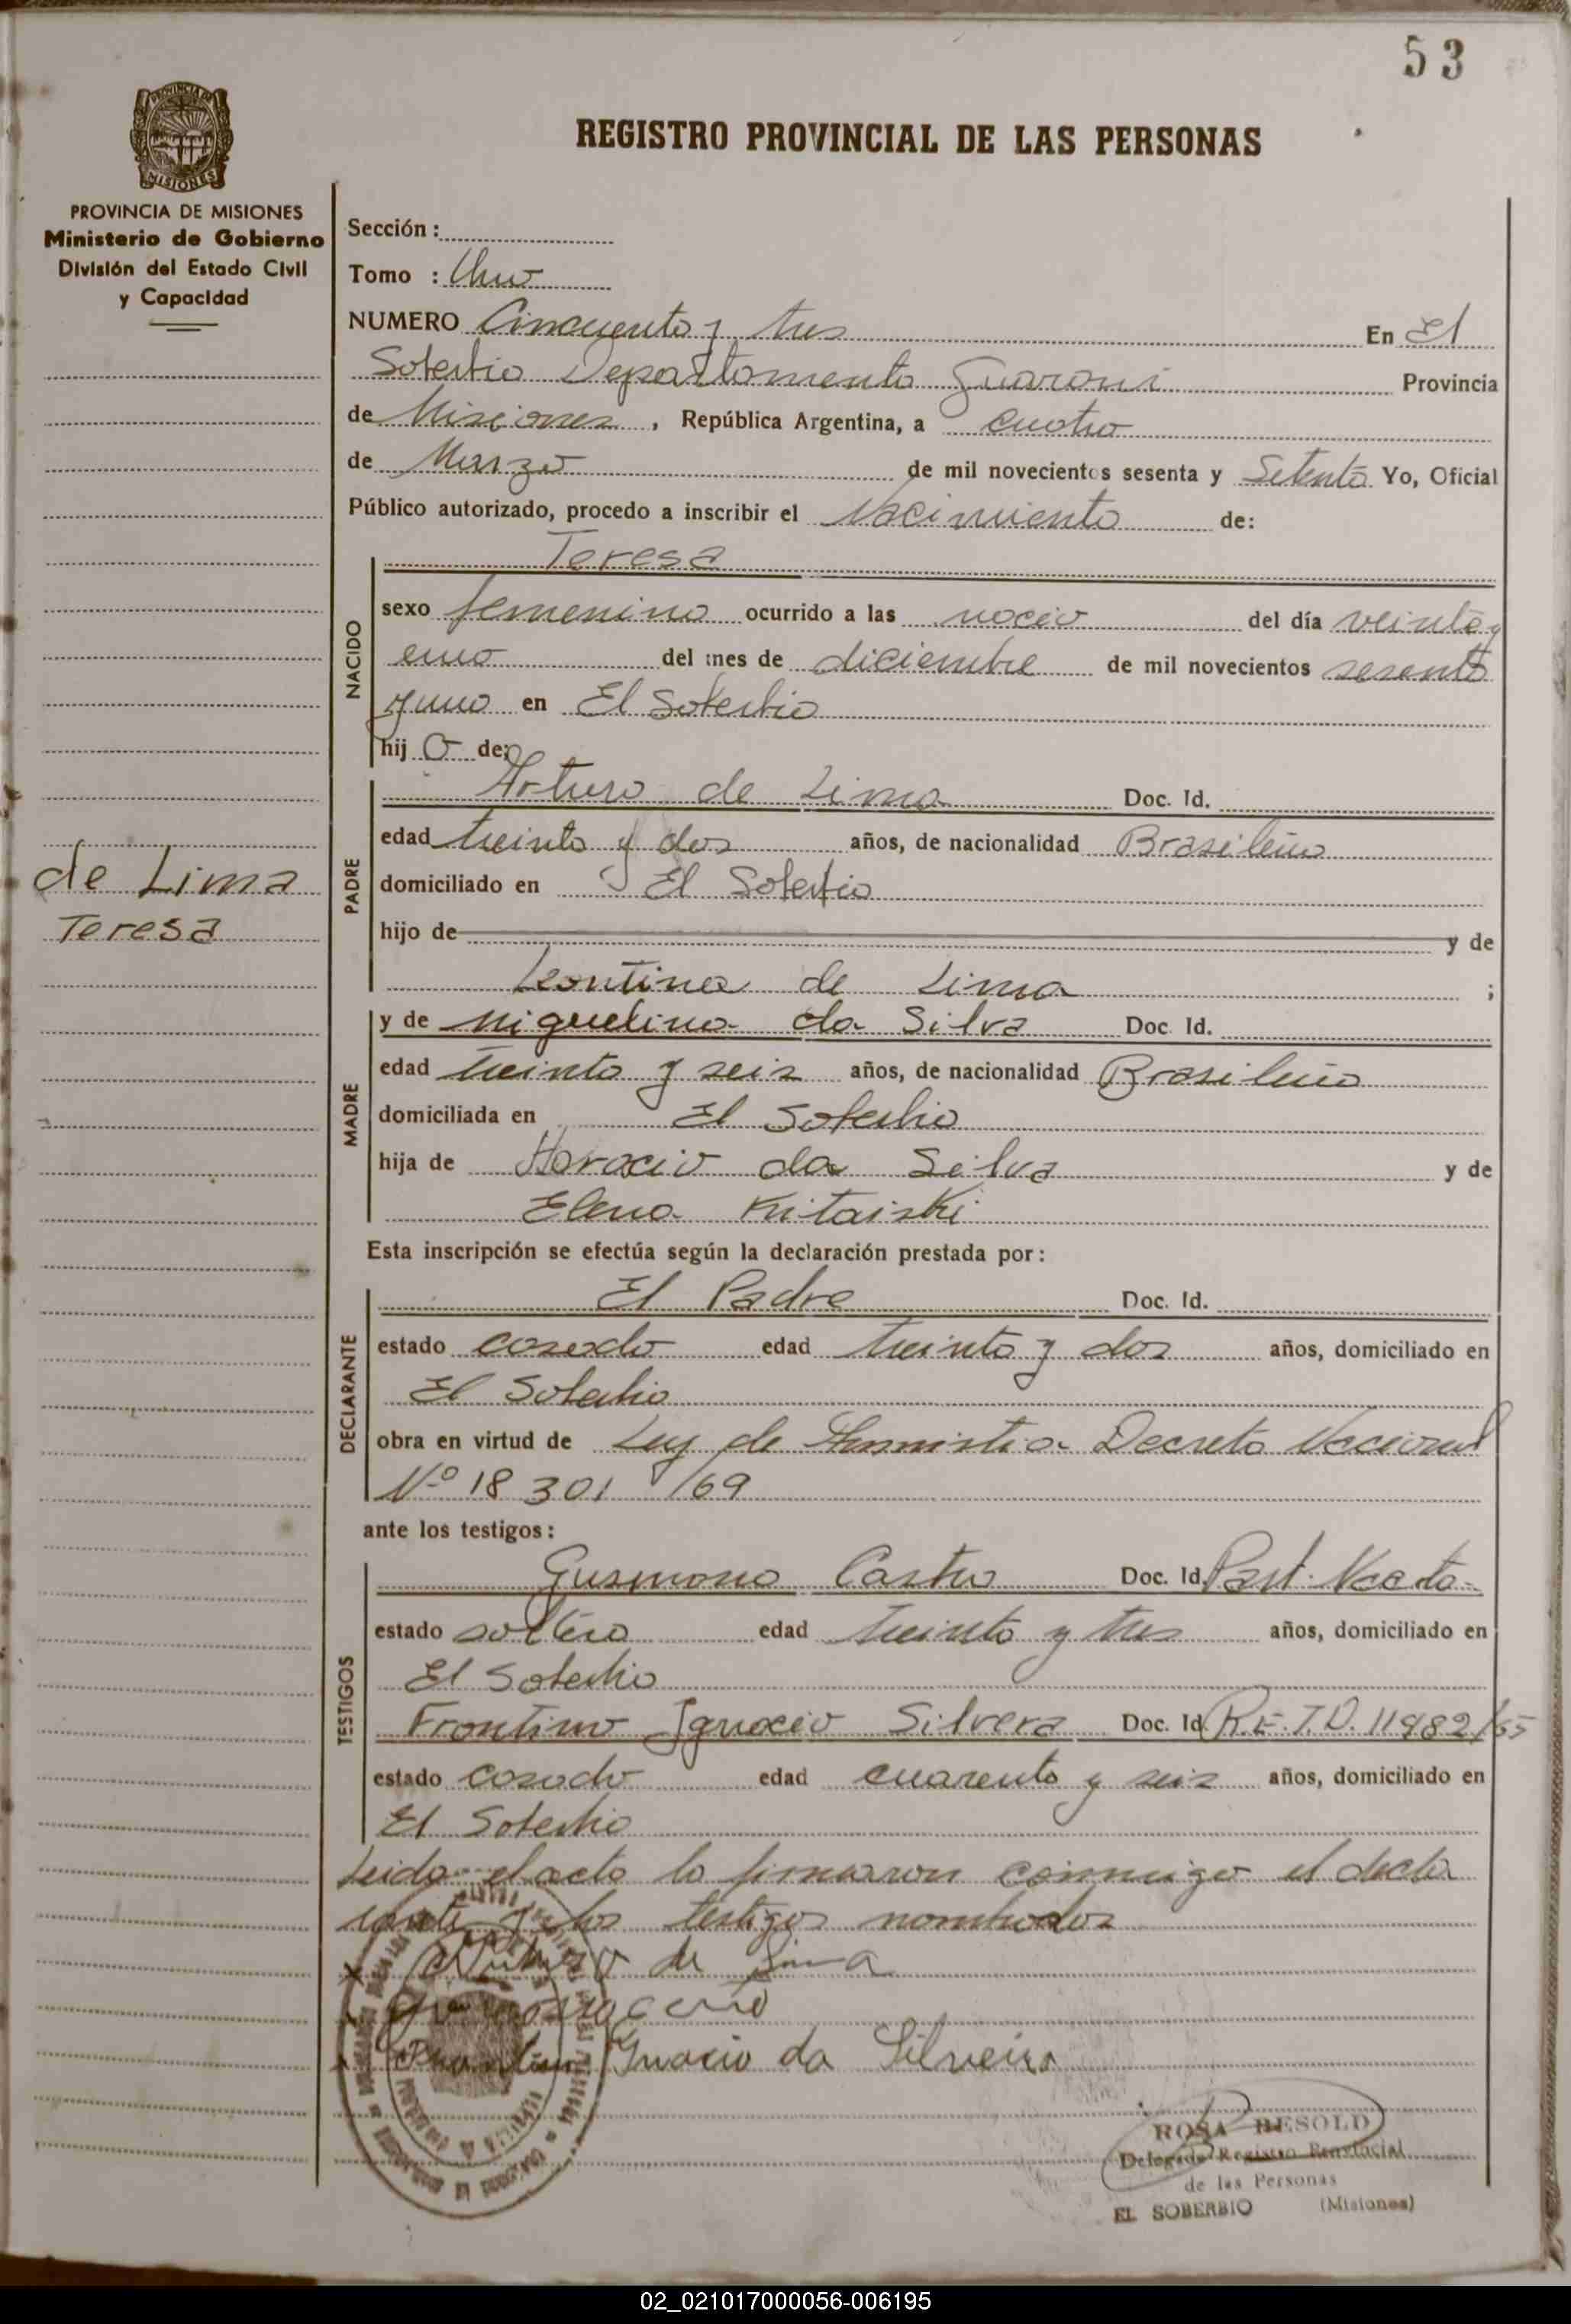 53
REGISTRO PROVINCIAL DE LAS PERSONAS
PROVINCIA DE MISIONES
Ministerio de Gobierno
División del Estado Civil
y Capacidad
Sección :
Tomo : Uno
NUMERO Cincuenta y tres En El
Soberbio Departamento Guaraní Provincia
de Misiones , República Argentina, a cuatro
de Marzo de mil novecientos sesenta y Setenta Yo, Oficial
Público autorizado, procedo a inscribir el Nacimiento de:
Teresa
NACIDO
sexo femenino ocurrido a las nació del día veinte y
uno del mes de diciembre de mil novecientos sesenta
y uno en El Soberbio
hij a de:
PADRE
Arturo de Lima Doc. Id.
edad treinta y dos años, de nacionalidad Brasileño
domiciliado en El Soberbio
de Lima
Teresa
hijo de y de
Leontina de Lima ;
MADRE
y de Miguelina da Silva Doc. Id.
edad treinta y seis años, de nacionalidad Brasileña
domiciliada en El Soberbio
hija de Horacio da Silva y de
Elena Kitaiski
Esta inscripción se efectúa según la declaración prestada por :
DECLARANTE
El Padre Doc. Id.
estado casado edad treinta y dos años, domiciliado en
El Soberbio
obra en virtud de Ley de Amnistia Decreto Nacional
Nº 18 301 /69
ante los testigos :
TESTIGOS
Gusmano Castro Doc. Id. Part. Nacto
estado soltero edad treinta y tres años, domiciliado en
El Soberbio
Frontino Ignacio Silvera Doc. Id. R.E.T.D. 11982/65
estado casado edad cuarenta y seis años, domiciliado en
El Soberbio
Leida el acta la firmaron conmigo el decla
rante y los testigos nombrados
Arturo de Lima
Ignacio da Silveira
ROSA BESOLD
Delegada Registro Provincial
de las Personas
EL SOBERBIO (Misiones)
02_021017000056-006195